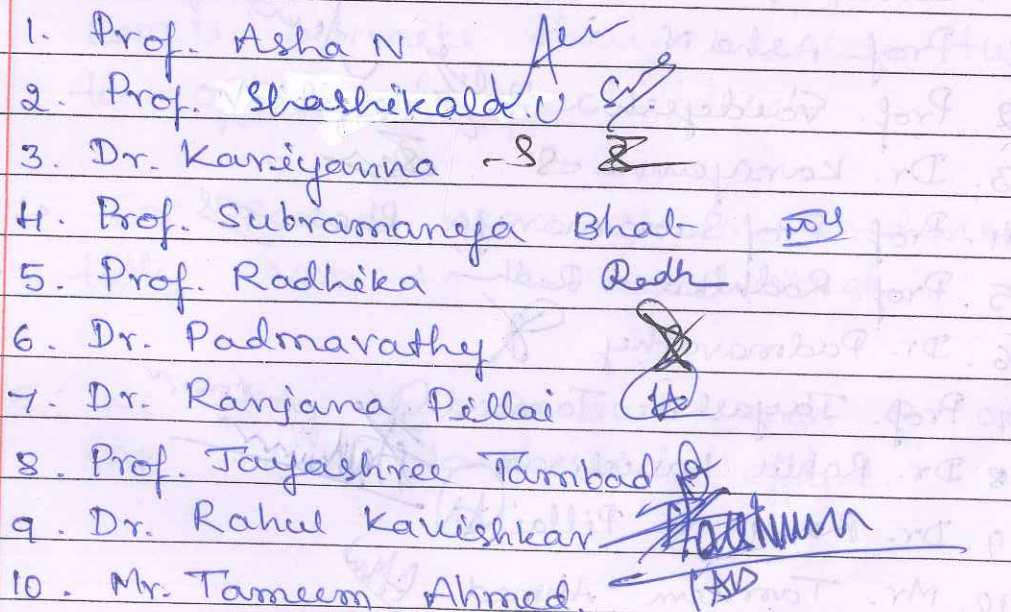 1. Prof. Asha N
2. Prof. Shashikala.U
3. Dr. Kariyanna -S
4. Prof. Subramaneya Bhat
5. Prof. Radhika Radh
6. Dr. Padmavathy
7. Dr. Ranjana Pillai
8. Prof. Jayashree Tambad
9. Dr. Rahul Kaveshkar
10. Mr. Tameem Ahmed.